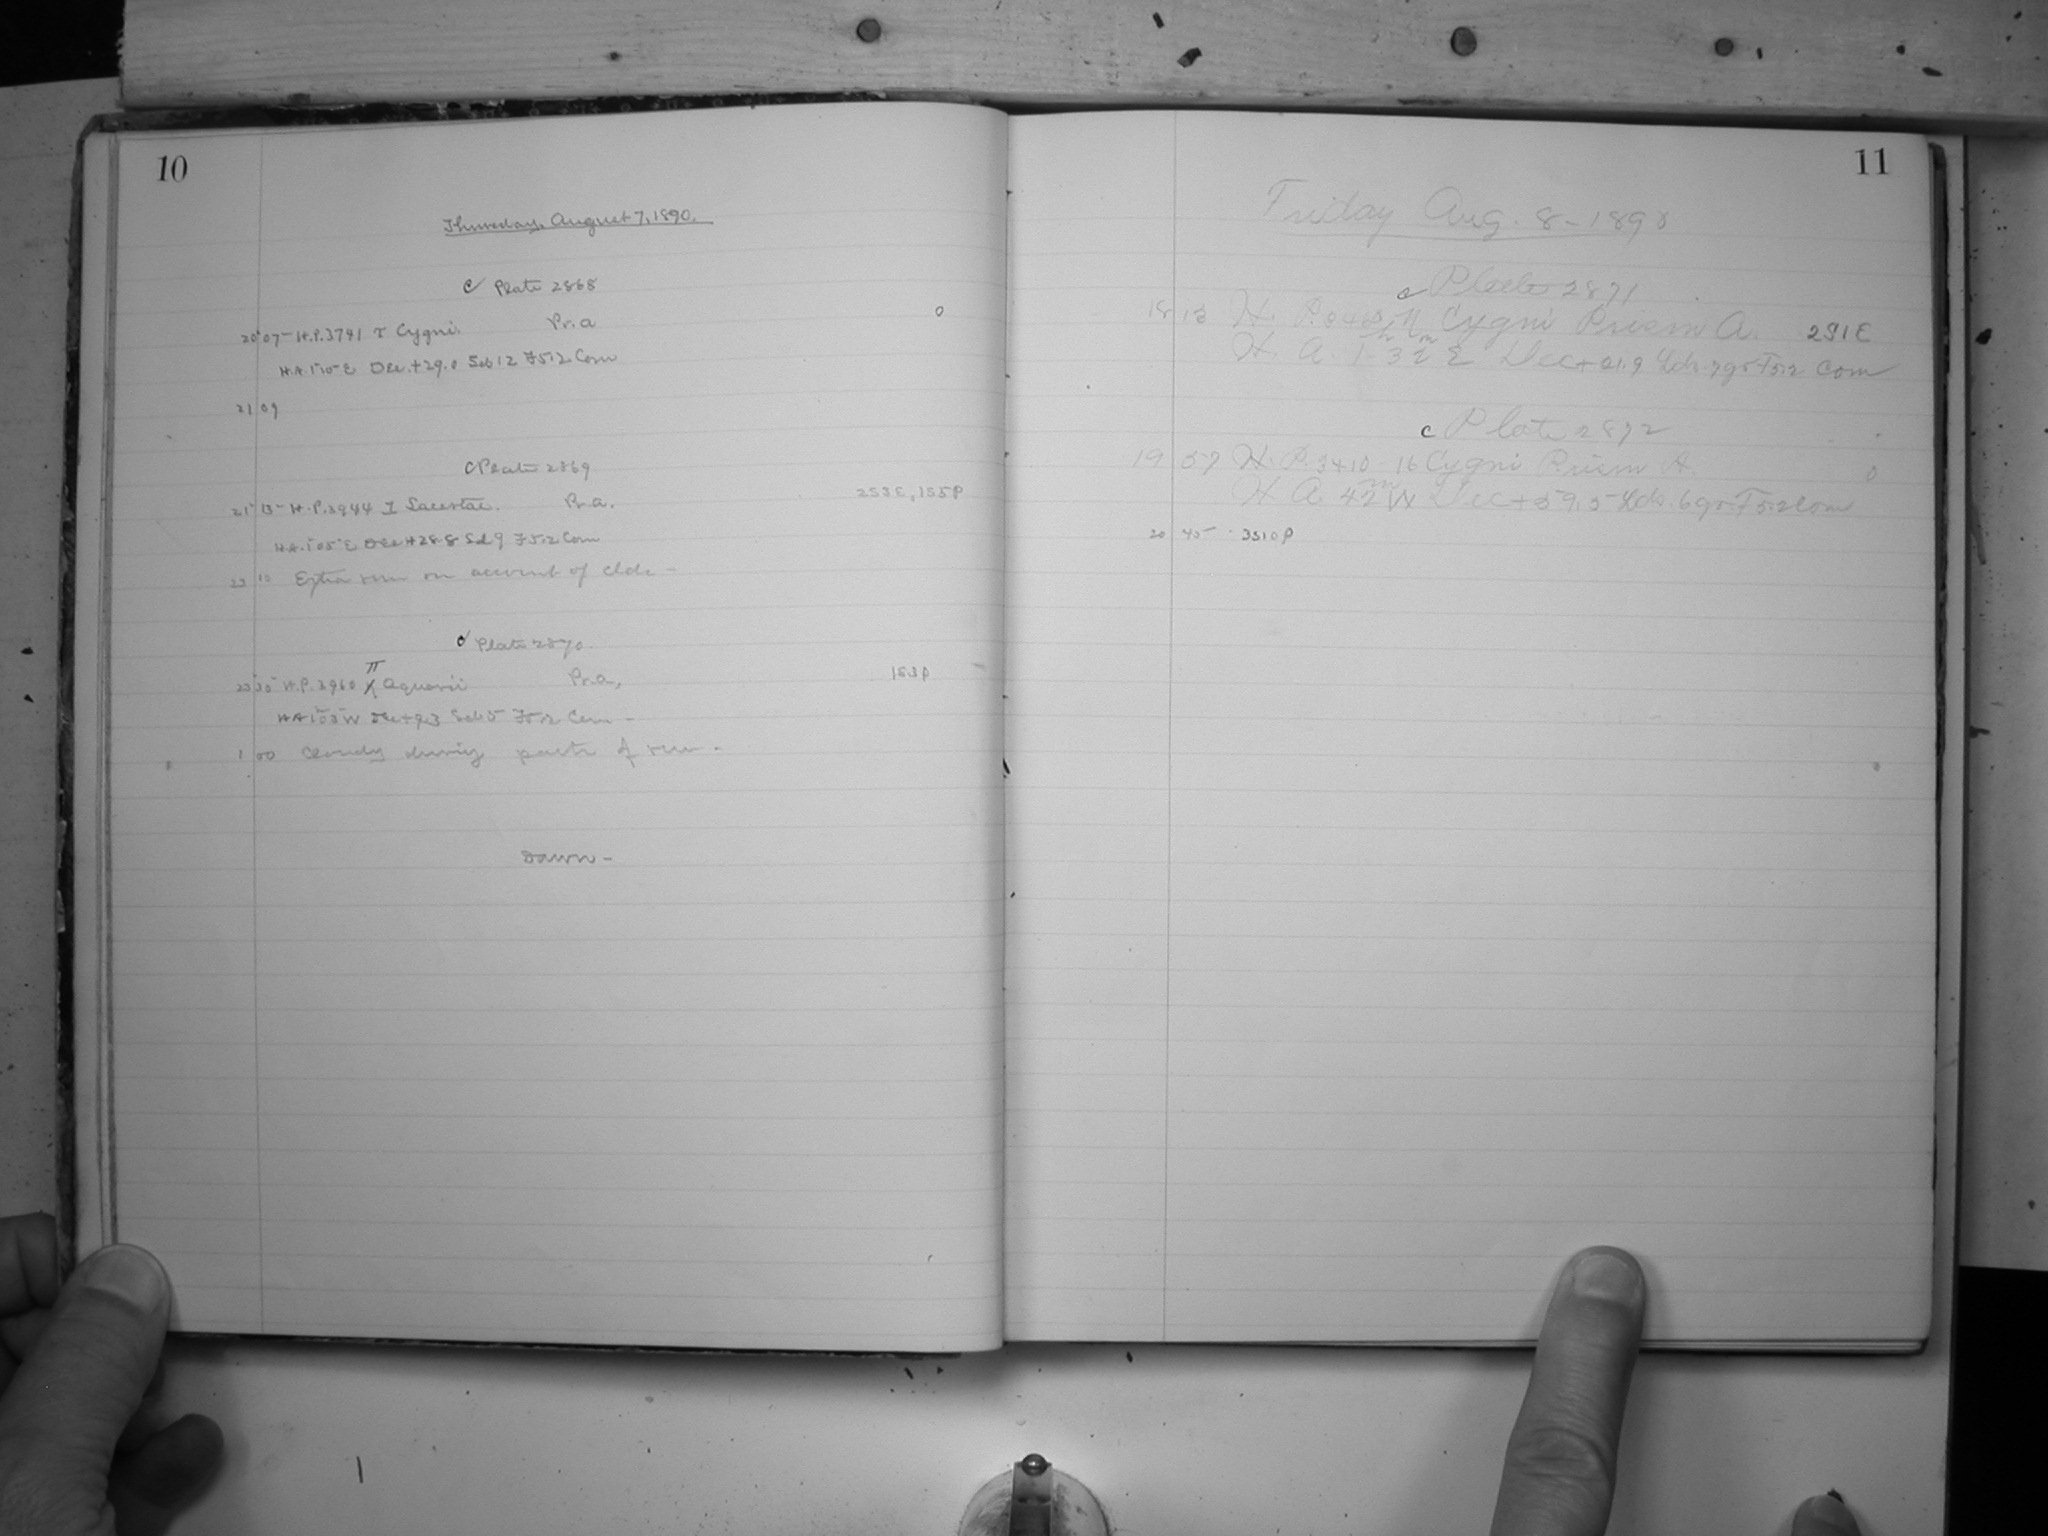 10
Thursday, August 7, 1890.
c Plate 2868
20 07 H.P. 3741 τ Cygni. Pr. a 0
H.A. 1 10 E Dec. +29.0 Seb 12 F5.2 Com
21 09
c Plate 2869
21 13 H.P. 3944 1 Lacertae. Pr. a. 253E, 155P
H.A. 1 05 E Dec +28.8 Sd 9 F5.2 Com
23 10 Extra run on account of clds -
c Plate 2870.
π
23 30 H.P. 3960 Aquarii Pr. a, 183P
H A 1 03 W Dec +9.3 Seb 5 F5.2 Com -
1 00 Cloudy during parts of run -
Dawn -
11
Friday Aug. 8 - 1890
c Plate 2871
18 13 H. P. Cygni Prism A. 291E
H. A. 1 32 E Dec + F5.2 Com
c Plate 2872
19 57 H. P. 3410 16 Cygni Prism A. 0
H A 42m W Dec + 59.5 F5.2 Com
20 45 3310P